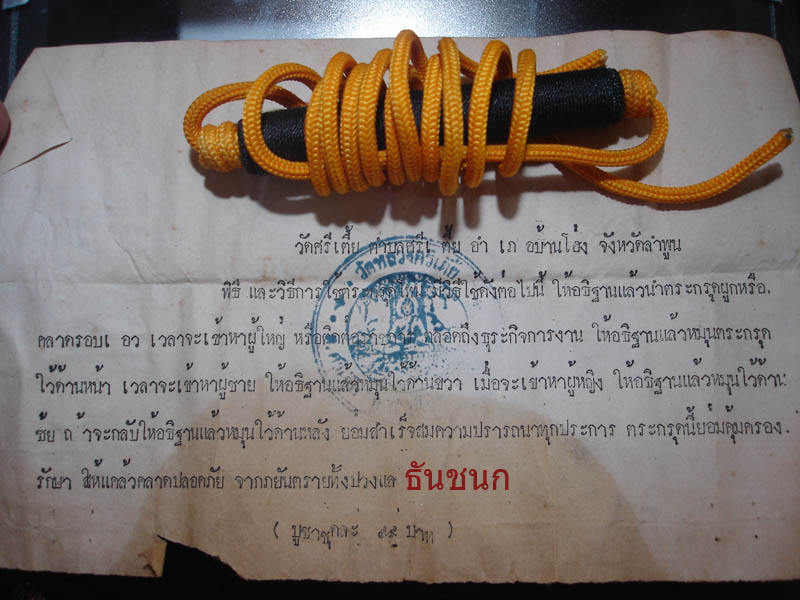 วัดศรีเตี้ย ตำบลศรีเตี้ย อำเภอบ้านโฮ่ง จังหวัดลำพูน
พิธี และวิธีการใช้ตระกรุดโทน มีวิธีใช้ดังต่อไปนี้ ให้อธิฐานแล้วนำตระกรุดผูกหรือ.
คลาดรอบเอว เวลาจะเข้าหาผู้ใหญ่ หรือติดต่อราชการ ตลอดถึงธุระกิจการงาน ให้อธิฐานแล้วหมุนตระกรุด
ใว้ด้านหน้า เวลาจะเข้าหาผู้ชาย ให้อธิฐานแล้วหมุนใว้ด้านขวา เมื่อจะเข้าหาผู้หญิง ให้อธิฐานแล้วหมุนใว้ด้าน
ซ้ย ถ้าจะกลับให้อธิฐานแล้วหมุนใว้ด้านหลัง ย่อมสำเร็จสมความปรารถนาทุกประการ ตระกรุดนี้ย่อมคุ้มครอง.
รักษา ให้แคล้วคลาดปลอดภัย จากภยันตรายทั้งปวงแล ธันชนก
( บูชาชุดละ ๔๕ บาท )